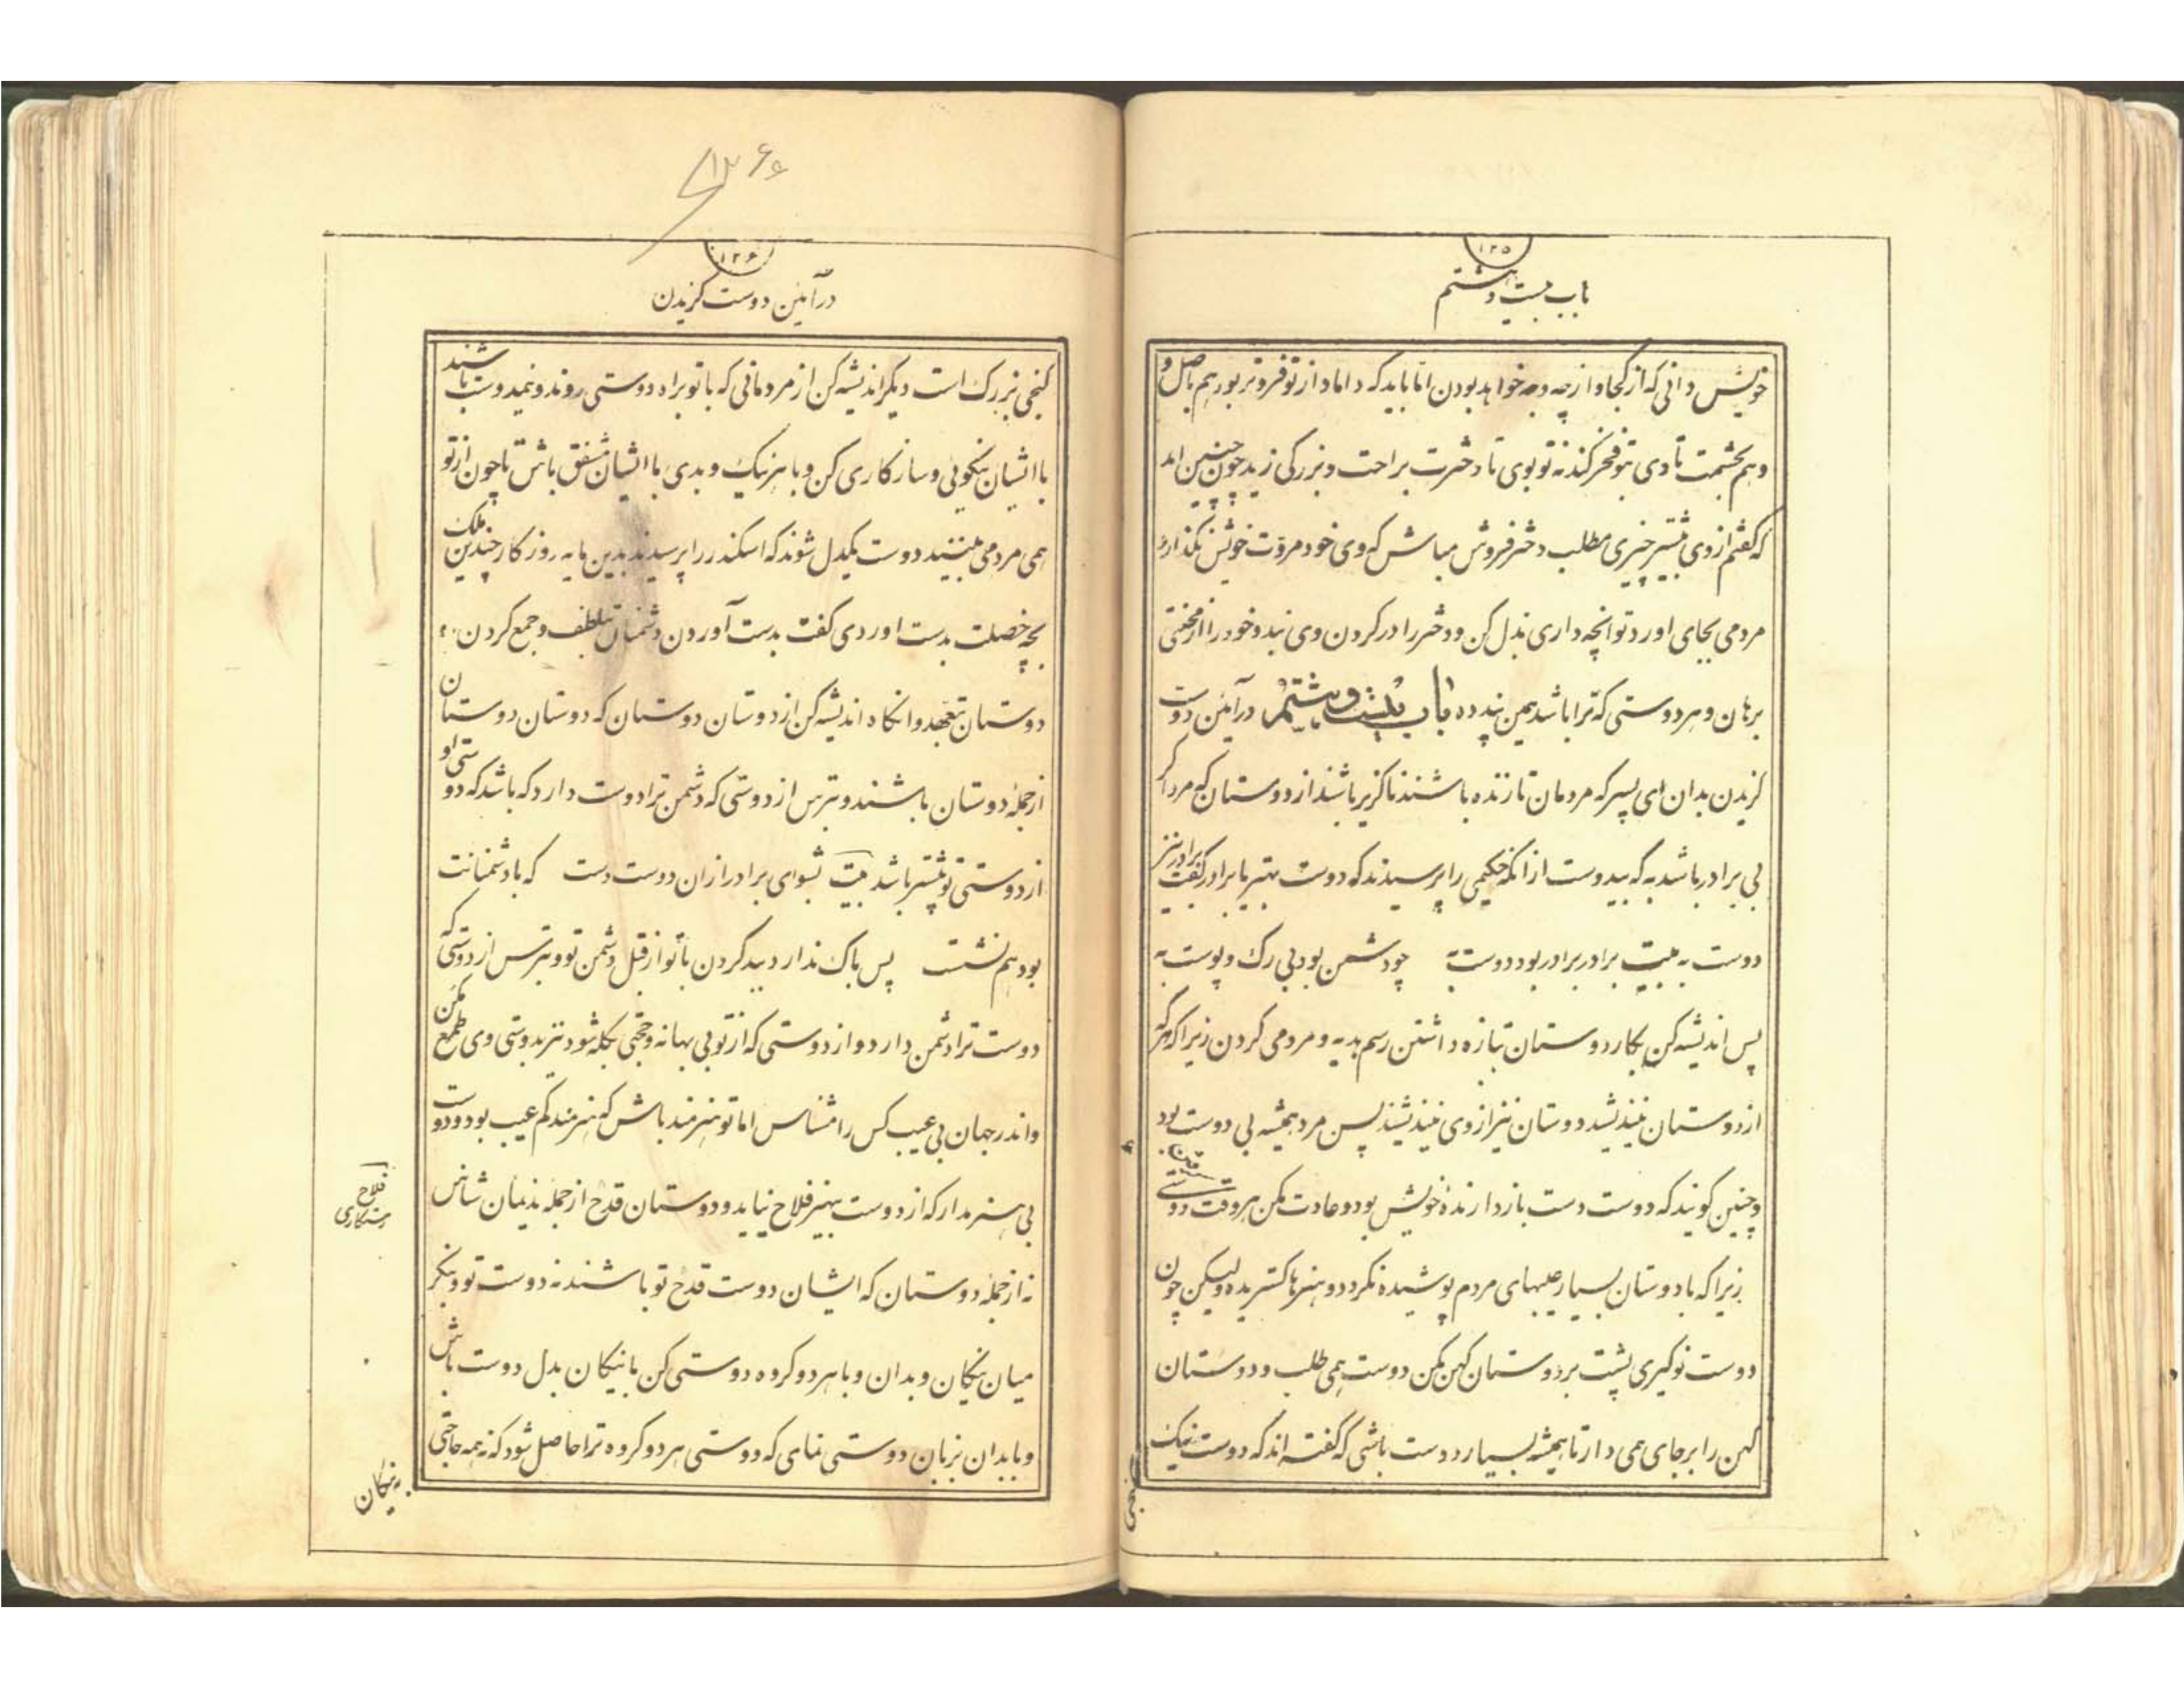 ۱۲۵
باب بیست و هشتم
خویش دانی که از کجا و از چه وجه خواهد بودن اما باید که داماد از تو فروتر بود هم باصل و
و هم بحشمت تا وی بتو فخر کند نه تو بوی تا دخترت براحت و بزرگی زید چون چنین اید
که گفتم از وی بیشتر چیزی مطلب دختر فروش مباش که وی خود مروت خویش نگذارد
مردمی بجای اورد تو انچه داری بذل کن و دختر را در کردن وی بند و خود را از محنتی
برهان و هر دوستی که ترا باشد همین پند ده باب بیست و هشتم در آئین دوست
گزیدن بدان ای پسر که مردمان تا زنده باشند ناگزیر باشند از دوستان که مرد اگر
بی برادر باشد به که بیدوست از انکه حکیمی را پرسیدند که دوست بهتر یا برادر گفت برادر نیز
دوست به بیت برادر برادر بود دوست به چو دشمن بود بی رک و پوست به
پس اندیشه کن بکار دوستان بتازه داشتن رسم هدیه و مردمی کردن زیرا که هر که
از دوستان نیندیشد دوستان نیز از وی نیندیشند پس مرد همیشه بی دوست بود
و چنین کویند که دوست دست بازدارنده خویش بود و عادت مکن هر وقت دوستی
زیرا که با دوستان بسیار عیبهای مردم پوشیده نکردد و هنرها کستریده ولیکن چون
دوست نو کیری پشت بر دوستان کهن مکن دوست همی طلب و دوستان
کهن را بر جای همی دار تا همیشه بسیار دوست باشی که گفته اند که دوست نیک
۱۲۶
در آئین دوست گزیدن
کنجی بزرک است دیکر اندیشه کن از مردمانی که با تو براه دوستی روند و نیمدوست باشند
با ایشان نیکوئی و سازکاری کن و با هر نیک و بدی با ایشان متفق باش تا چون از تو
همی مردمی بینند دوست یکدل شوند که اسکندر را پرسیدند بدین مایه روزکار چندین ملک
بچه خصلت بدست اوردی گفت بدست آوردن دشمنان بتلطف و جمع کردن
دوستان بتعهد و انکاه اندیشه کن از دوستان دوستان که دوستان دوستان
از جمله دوستان باشند و بترس از دوستی که دشمن ترا دوست دارد که باشد که دوستی او
از دوستی تو بیشتر باشد بیت بشوای برادر ازان دوست دست که با دشمنانت
بود هم نشست پس باک ندارد بد کردن با تو از قبل دشمن تو و بترس از دوستی که
دوست ترا دشمن دارد و از دوستی که از تو بی بهانه و حجتی بکله شود نیز بدوستی وی طمع مکن
و اندر جهان بی عیب کس را مشناس اما تو هنرمند باش که هنرمند کم عیب بود و دوست
بی هنر مدار که از دوست بیهنر فلاح نیاید و دوستان قدح از جمله ندیمان شناس
نه از جمله دوستان که ایشان دوست قدح تو باشند نه دوست تو و بنکر
میان نیکان و بدان و با هر دو کروه دوستی کن با نیکان بدل دوست باش
و با بدان بزبان دوستی نمای که دوستی هر دو کروه ترا حاصل شود که نه همه حاجتی
فلاح
رستکاری
به نیکان